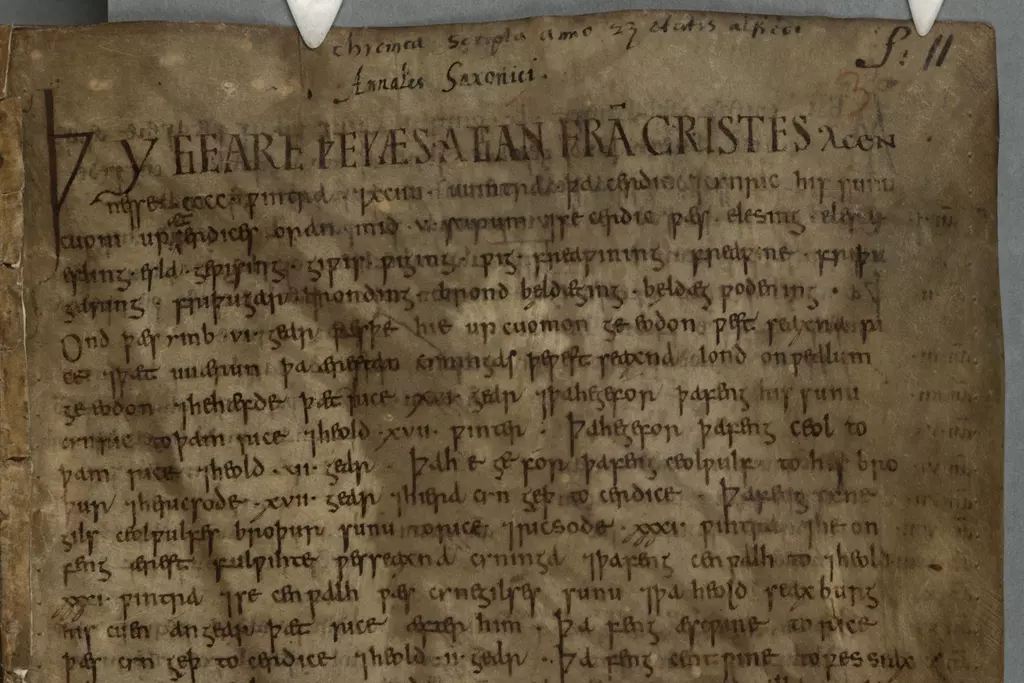 chronica scripta anno 23 etatis alfredi
f: 11
Annales Saxonici.
ÞY GEARE ÞE ǷÆS AGAN FRĀ CRISTES ACEN
nesse .cccc. ƿintra ⁊ xciiii uuintra þa cerdic ⁊ cynric his sunu
cuom up æt cerdices oran mid .v. scipum ⁊ se cerdic ƿæs elesing elesa
esling esla geƿising giƿis ƿiging ƿig freaƿining freaƿine friþu
garing friþugar bronding brond beldæging beldæg ƿodening
Ond þæs ymb .vi. gear þæs þe hie up cuomon ge eodon ƿest seaxna ri
ce ⁊ þæt uuærun þa ærestan cyningas þe ƿest seaxna lond on ƿealum
ge eodon ⁊ he hæfde þæt rice .xvi. gear ⁊ þa he gefor þa feng his sunu
cynric to þam rice ⁊ heold .xvii. ƿinter. Þa he gefor þa feng ceol to
þam rice ⁊ heold .vi. gear. Þa he gefor þa feng ceolƿulf to his bro
þur ⁊ he ricsode .xvii. gear ⁊ hiera cyn gæþ to cerdice Þa feng cyne
gils ceolƿulfes broþur sunu to rice ⁊ ricsode .xxxi. ƿintra ⁊ he on
feng ærest fulƿihte ƿesseaxna cyninga ⁊ þa feng cenƿalh to ⁊ heold
xxxi. ƿintra ⁊ se cenƿalh ƿæs cynegilses sunu ⁊ þa heold seaxburg
his cuen an gear þæt rice æfter him. Þa feng æscƿine to rice
þæs cyn gæþ to cerdice ⁊ heold .ii. gear. Þa feng centƿine to ƿesseax